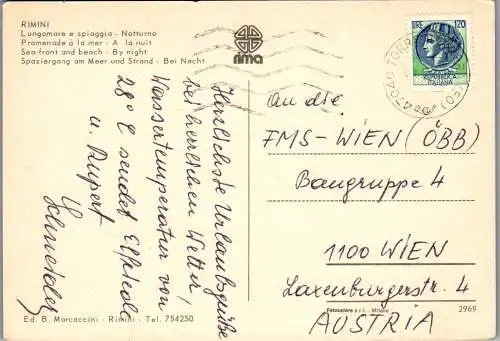 RIMINI
Lungomare e spiaggia - Notturno
Promenade à la mer - A la nuit
Sea-front and beach - By night
Spaziergang am Meer und Strand - Bei Nacht
rima
LIRE 120
REPUBBLICA
ITALIANA
47040 TORR
(FO)
Herzlichste Urlaubsgrüße
bei herrlichen Wetter,
Wassertemperatur von
28° C sendet
u. Rupert
An die
FMS-WIEN (ÖBB)
Baugruppe 4
1100 WIEN
Laxenburgerstr. 4
AUSTRIA
Ed. B. Marcaccini - Rimini - Tel. 754250
Fotocolore s.r.l. - Milano
2969